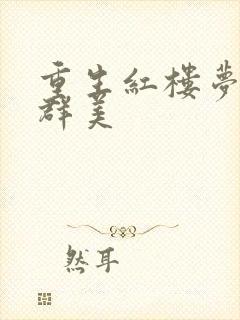 重生紅樓夢
群美
然耳